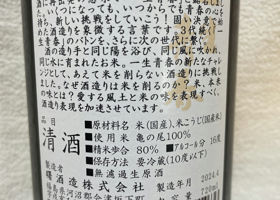 持ち、新しい挑戦をしていこう！固い決意で始
めた酒造りを象徴する言葉です。3代続く「一
生青春」のバトンを、さらに次の世代に繋ぐ。
酒の造り手と同じ陽を浴び、同じ風に吹かれ、
同じ水に育まれたお米。一生青春の新たなチャ
レンジとして、あえて米を削らない酒造りに挑戦し
ました。なぜ酒造りは米を削るのか?米、本来
の味とは?愛する風土と米の味を表現すべく、
酒造りを追求しています。
品目
清酒
■原材料名 米(国産)、米こうじ(国産米)
■使用米 亀の尾100%
■精米歩合 80% ■アルコール分 16度
■保存方法 要冷蔵(10度以下)
■無濾過生原酒
製造者
曙酒造株式会社
製造年月 2024.4
720ml
福島県河沼郡会津坂下町